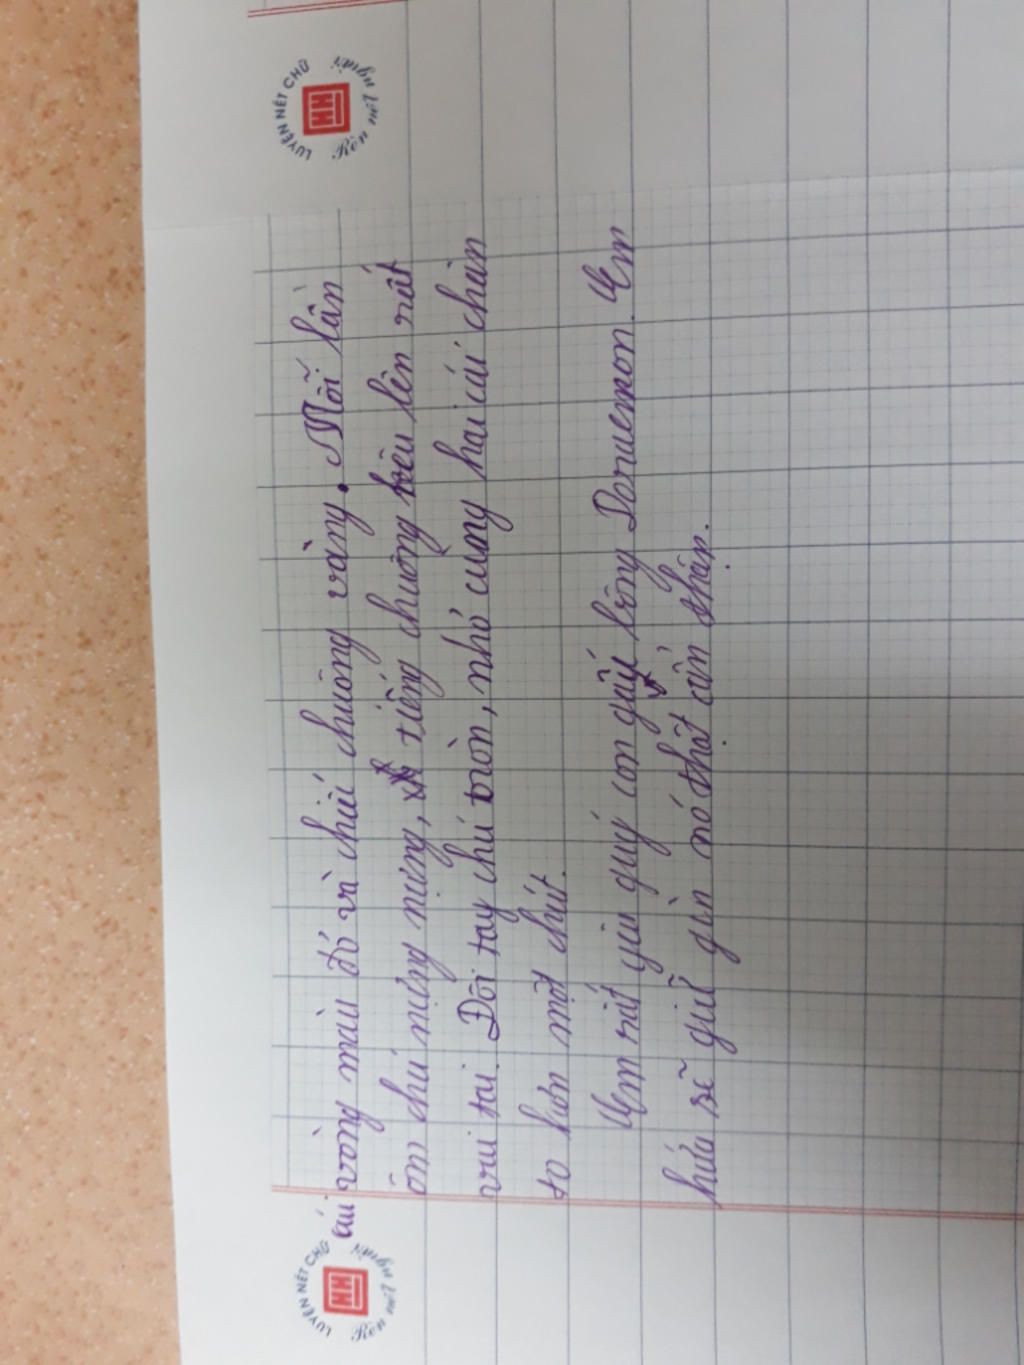 LUYỆN NÉT CHỮ
Rèn nết người
LUYỆN NÉT CHỮ
Rèn nết người
cái vòng màu đỏ và chiếc chuông vàng. Mỗi lần
ôm chú nựng nựng, tiếng chuông kêu lên rất
vui tai. Đôi tay chú tròn, nhỏ cùng hai cái chân
to hơn một chút.
Em rất yêu quý con gấu bông Doraemon. Em
hứa sẽ giữ gìn nó thật cẩn thận.